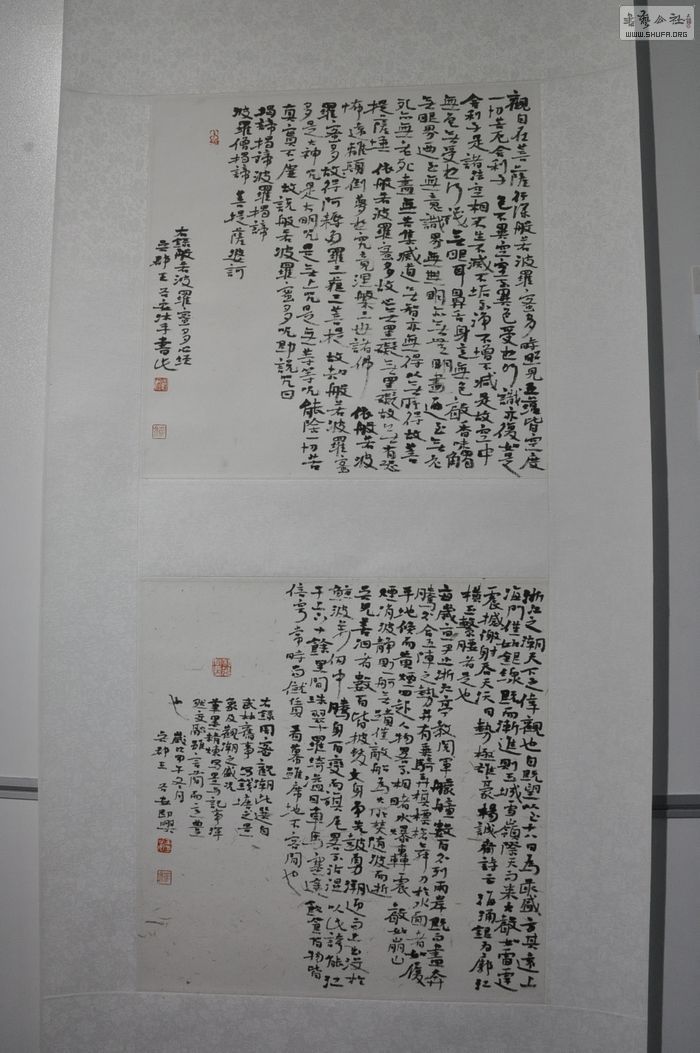 觀自在菩薩行深般若波羅蜜多時照見五蘊皆空度
一切苦厄舍利子色不異空空不異色受想行識亦復如是
舍利子是諸法空相不生不滅不垢不淨不增不減是故空中
無色無受想行識無眼耳鼻舌身意無色聲香味觸
無眼界乃至無意識界無無明亦無無明盡乃至無老
死亦無老死盡無苦集滅道無智亦無得以無所得故菩
提薩埵依般若波羅蜜多故心無罣礙無罣礙故無有恐
怖遠離顛倒夢想究竟涅槃三世諸佛依般若波
羅蜜多故得阿耨多羅三藐三菩提故知般若波羅蜜
多是大神咒是大明咒是無上咒是無等等咒能除一切苦
真實不虛故說般若波羅蜜多咒即說咒曰
揭諦揭諦波羅揭諦
波羅僧揭諦菩提薩婆訶
右錄般若波羅蜜多心經
吳郡王沐手書
浙江之潮天下之偉觀也自既望以至十八日為最盛方其遠出
海門僅如銀線既而漸近則玉城雪嶺際天而來大聲如雷霆
震撼激射吞天沃日勢極雄豪楊誠齋詩云海湧銀為郭江
橫玉繫腰者是也
每歲京尹出浙江亭教閱軍艨艟數百分列兩岸既而盡奔
騰分合五陣之勢並有乘騎弄旗標槍舞刀於水面者如履
平地倏而黃煙四起人物略不相睹水爆轟震聲如崩山
煙消波靜則一舸無跡僅敵船為火所焚隨波而逝
吳兒善泅者數百皆披髮文身爭先鼓勇溯迎而上出沒於
鯨波萬仞中騰身百變而旗尾略不沾濕以此誇能江
干上下十餘里間珠翠羅綺溢目車馬塞途飲食百物皆
倍穹常時而僦賃看幕雖席地不容間也
右錄周密觀潮此選自
武林舊事寫錢塘之景
象及觀潮之盛況
也
吳郡王
書藝公社
WWW.SHUFA.ORG